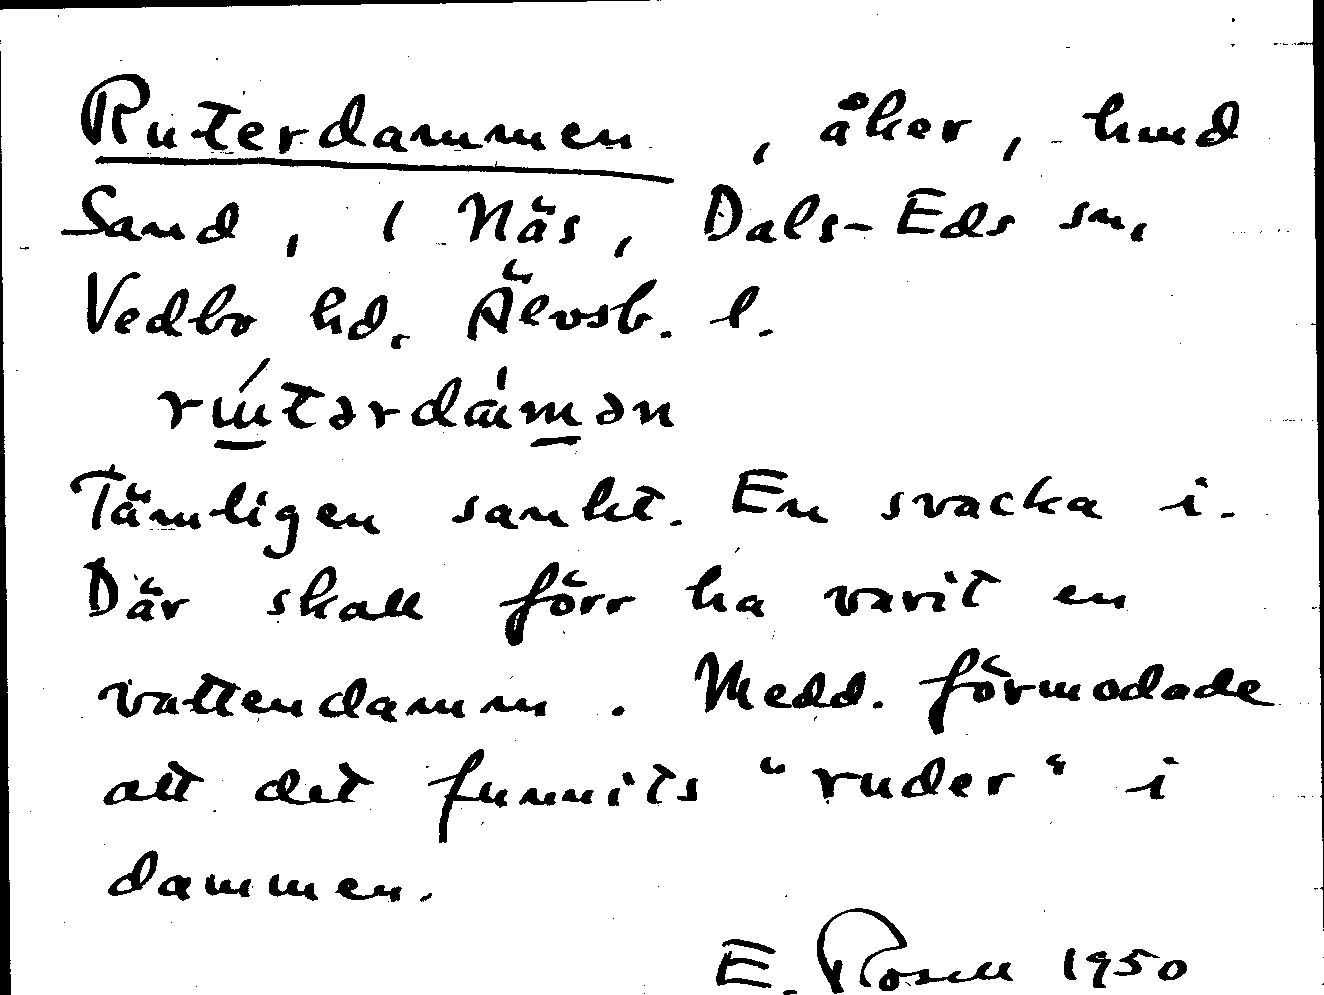 Ruterdammen, åker, hmd
Sand, 1 Näs, Dals-Eds sn,
Vedbo hd. Älvsb. l.
Tämligen sankt. En svacka i.
Där skall förr ha varit en
vattendamm. Medd. förmodade
att det funnits "ruder" i
dammen.
E. Rosell 1950